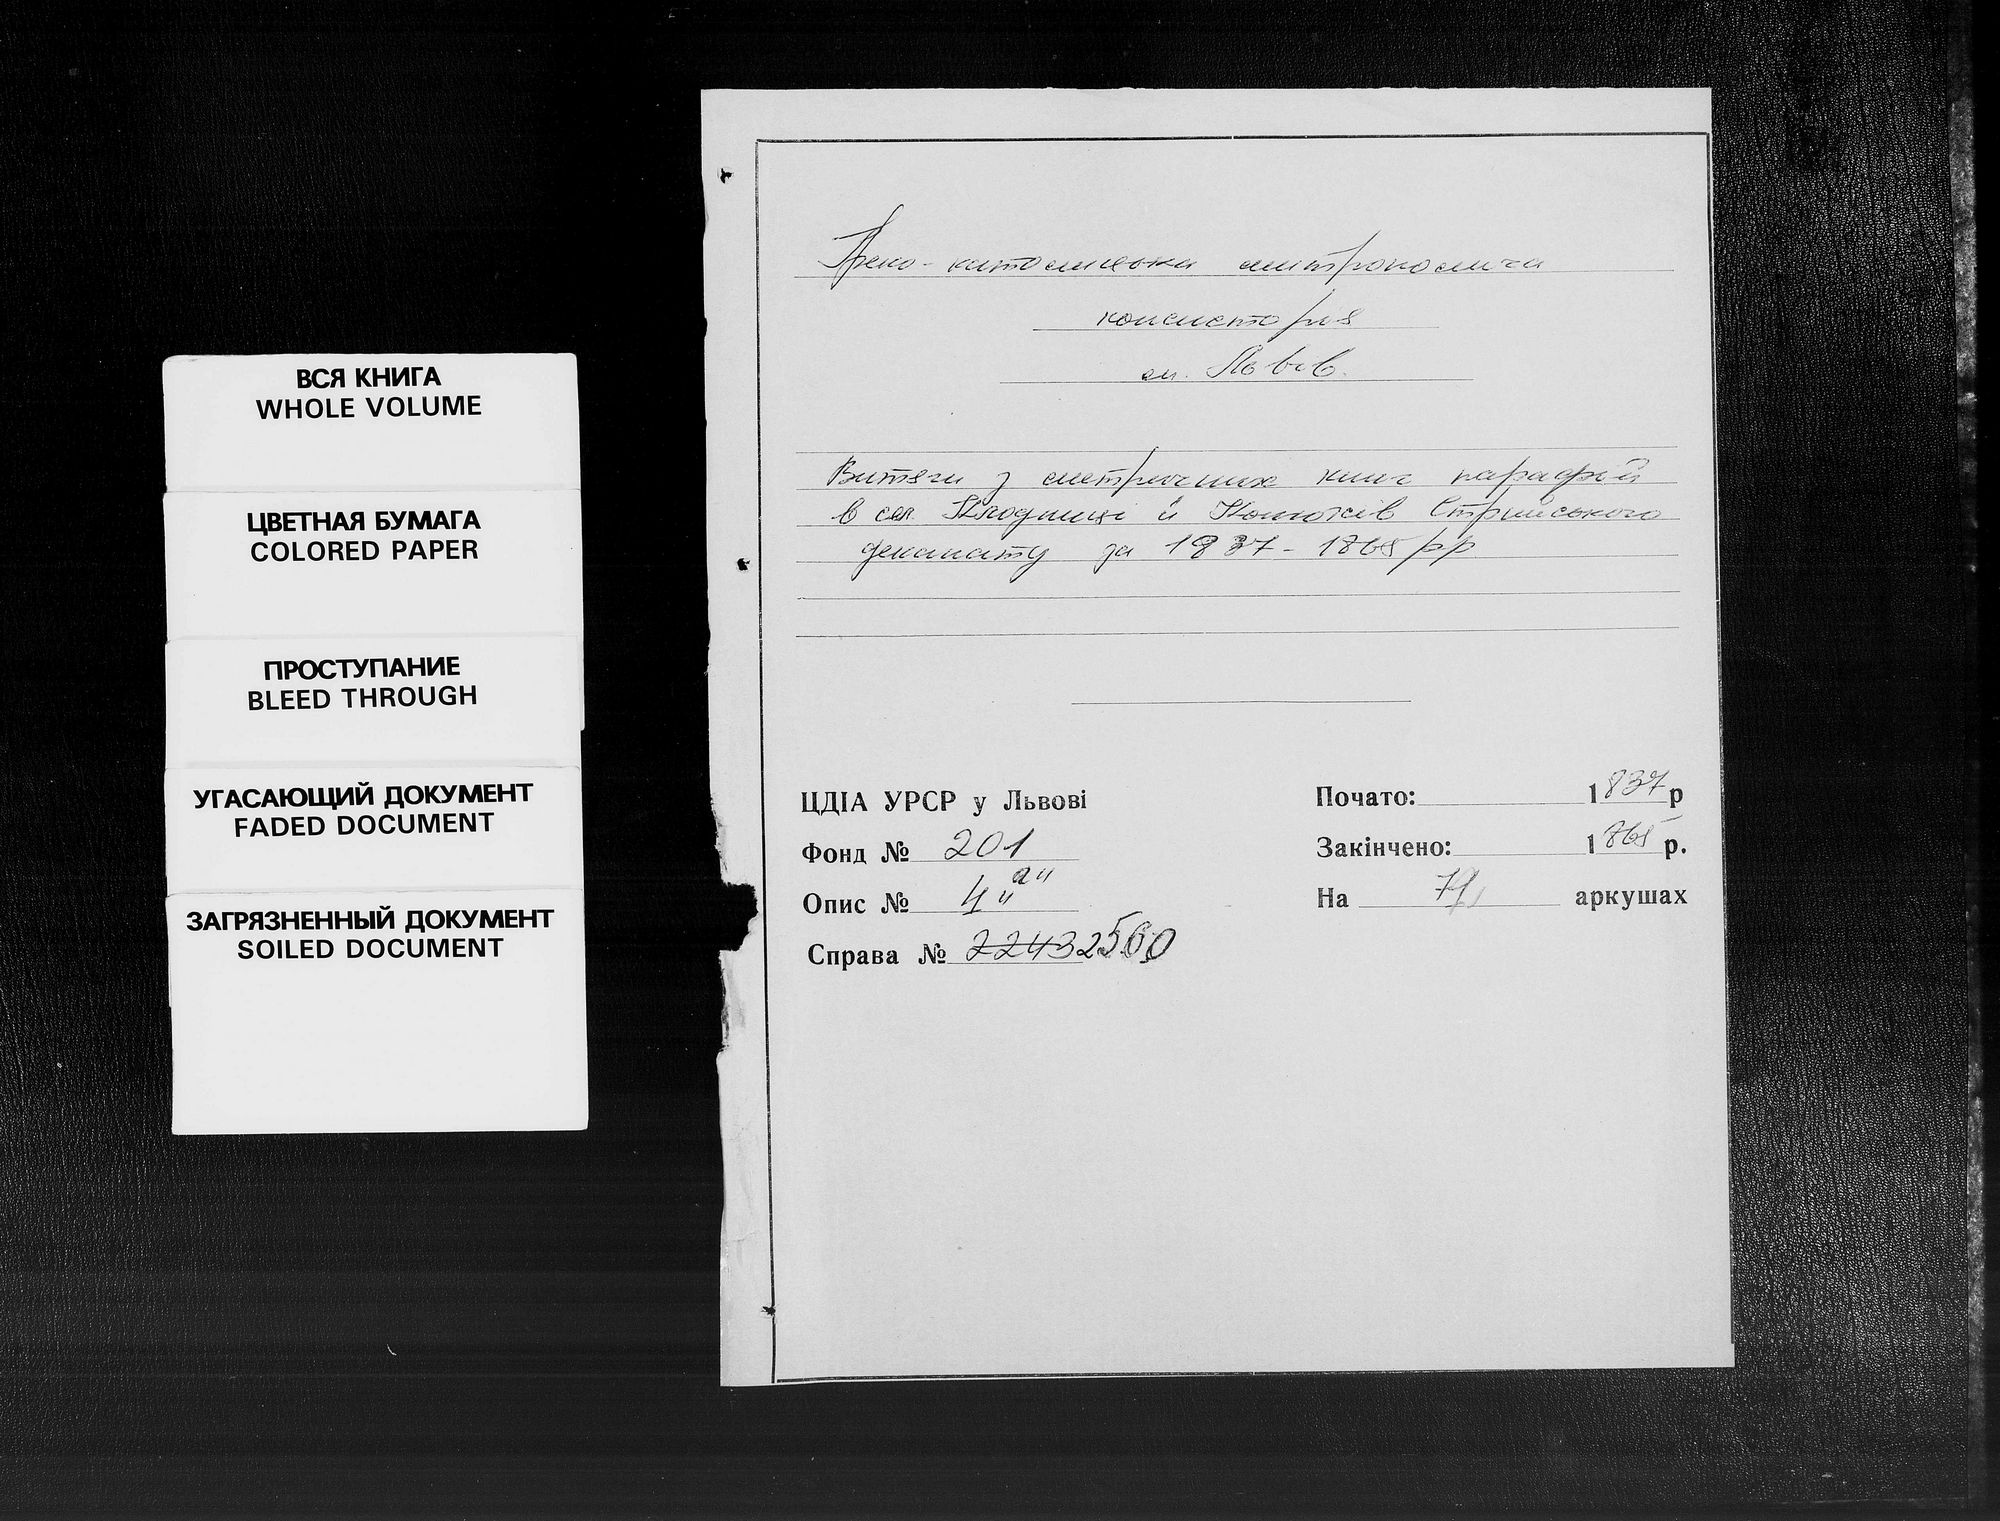 ВСЯ КНИГА
WHOLE VOLUME
ЦВЕТНАЯ БУМАГА
COLORED PAPER
ПРОСТУПАНИЕ
BLEED THROUGH
УГАСАЮЩИЙ ДОКУМЕНТ
FADED DOCUMENT
ЗАГРЯЗНЕННЫЙ ДОКУМЕНТ
SOILED DOCUMENT
Греко-католицька митрополича
консисторія
м. Львів.
Витяги з метричних книг парафій
в сел. Клодниці й Конюхів Стрийського
деканату за 1837-1865 рр
ЦДІА УРСР у Львові
Фонд № 201
Опис № 4 "а"
Справа № 2243 2560
Почато: 1837 р
Закінчено: 1865 р.
На аркушах